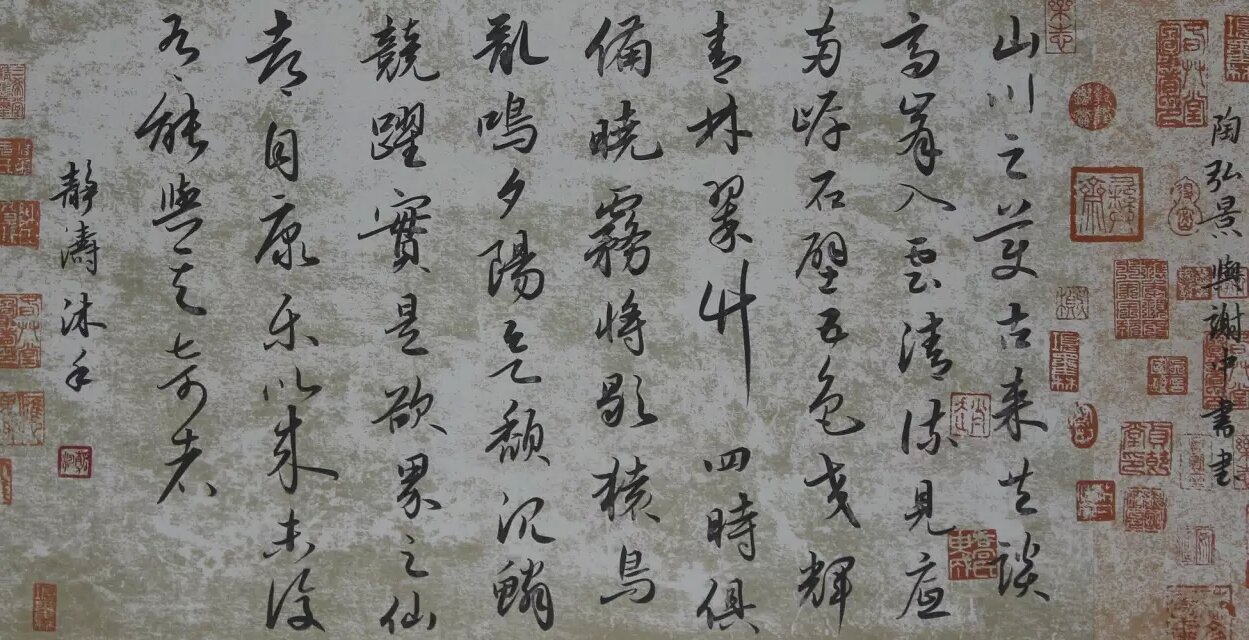 陶弘景與謝中書書
山川之美古来共談
高峯入雲清流見底
两岸石壁五色交輝
青林翠竹四時俱
備曉霧將歇猿鳥
亂鳴夕陽頹沉鱗
競躍實是欲界之仙
都自康乐以来未復
有能與其奇者
靜濤沐手